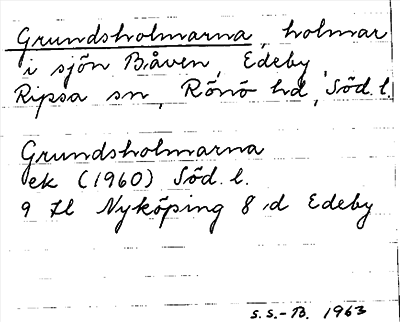 Grundsholmarna, holmar
i sjön Båven, Edeby,
Ripsa sn, Rönö hd, Söd. l.
Grundsholmarna
ek (1960) Söd. l.
9 H Nyköping 8 d Edeby
S.S.-B. 1963